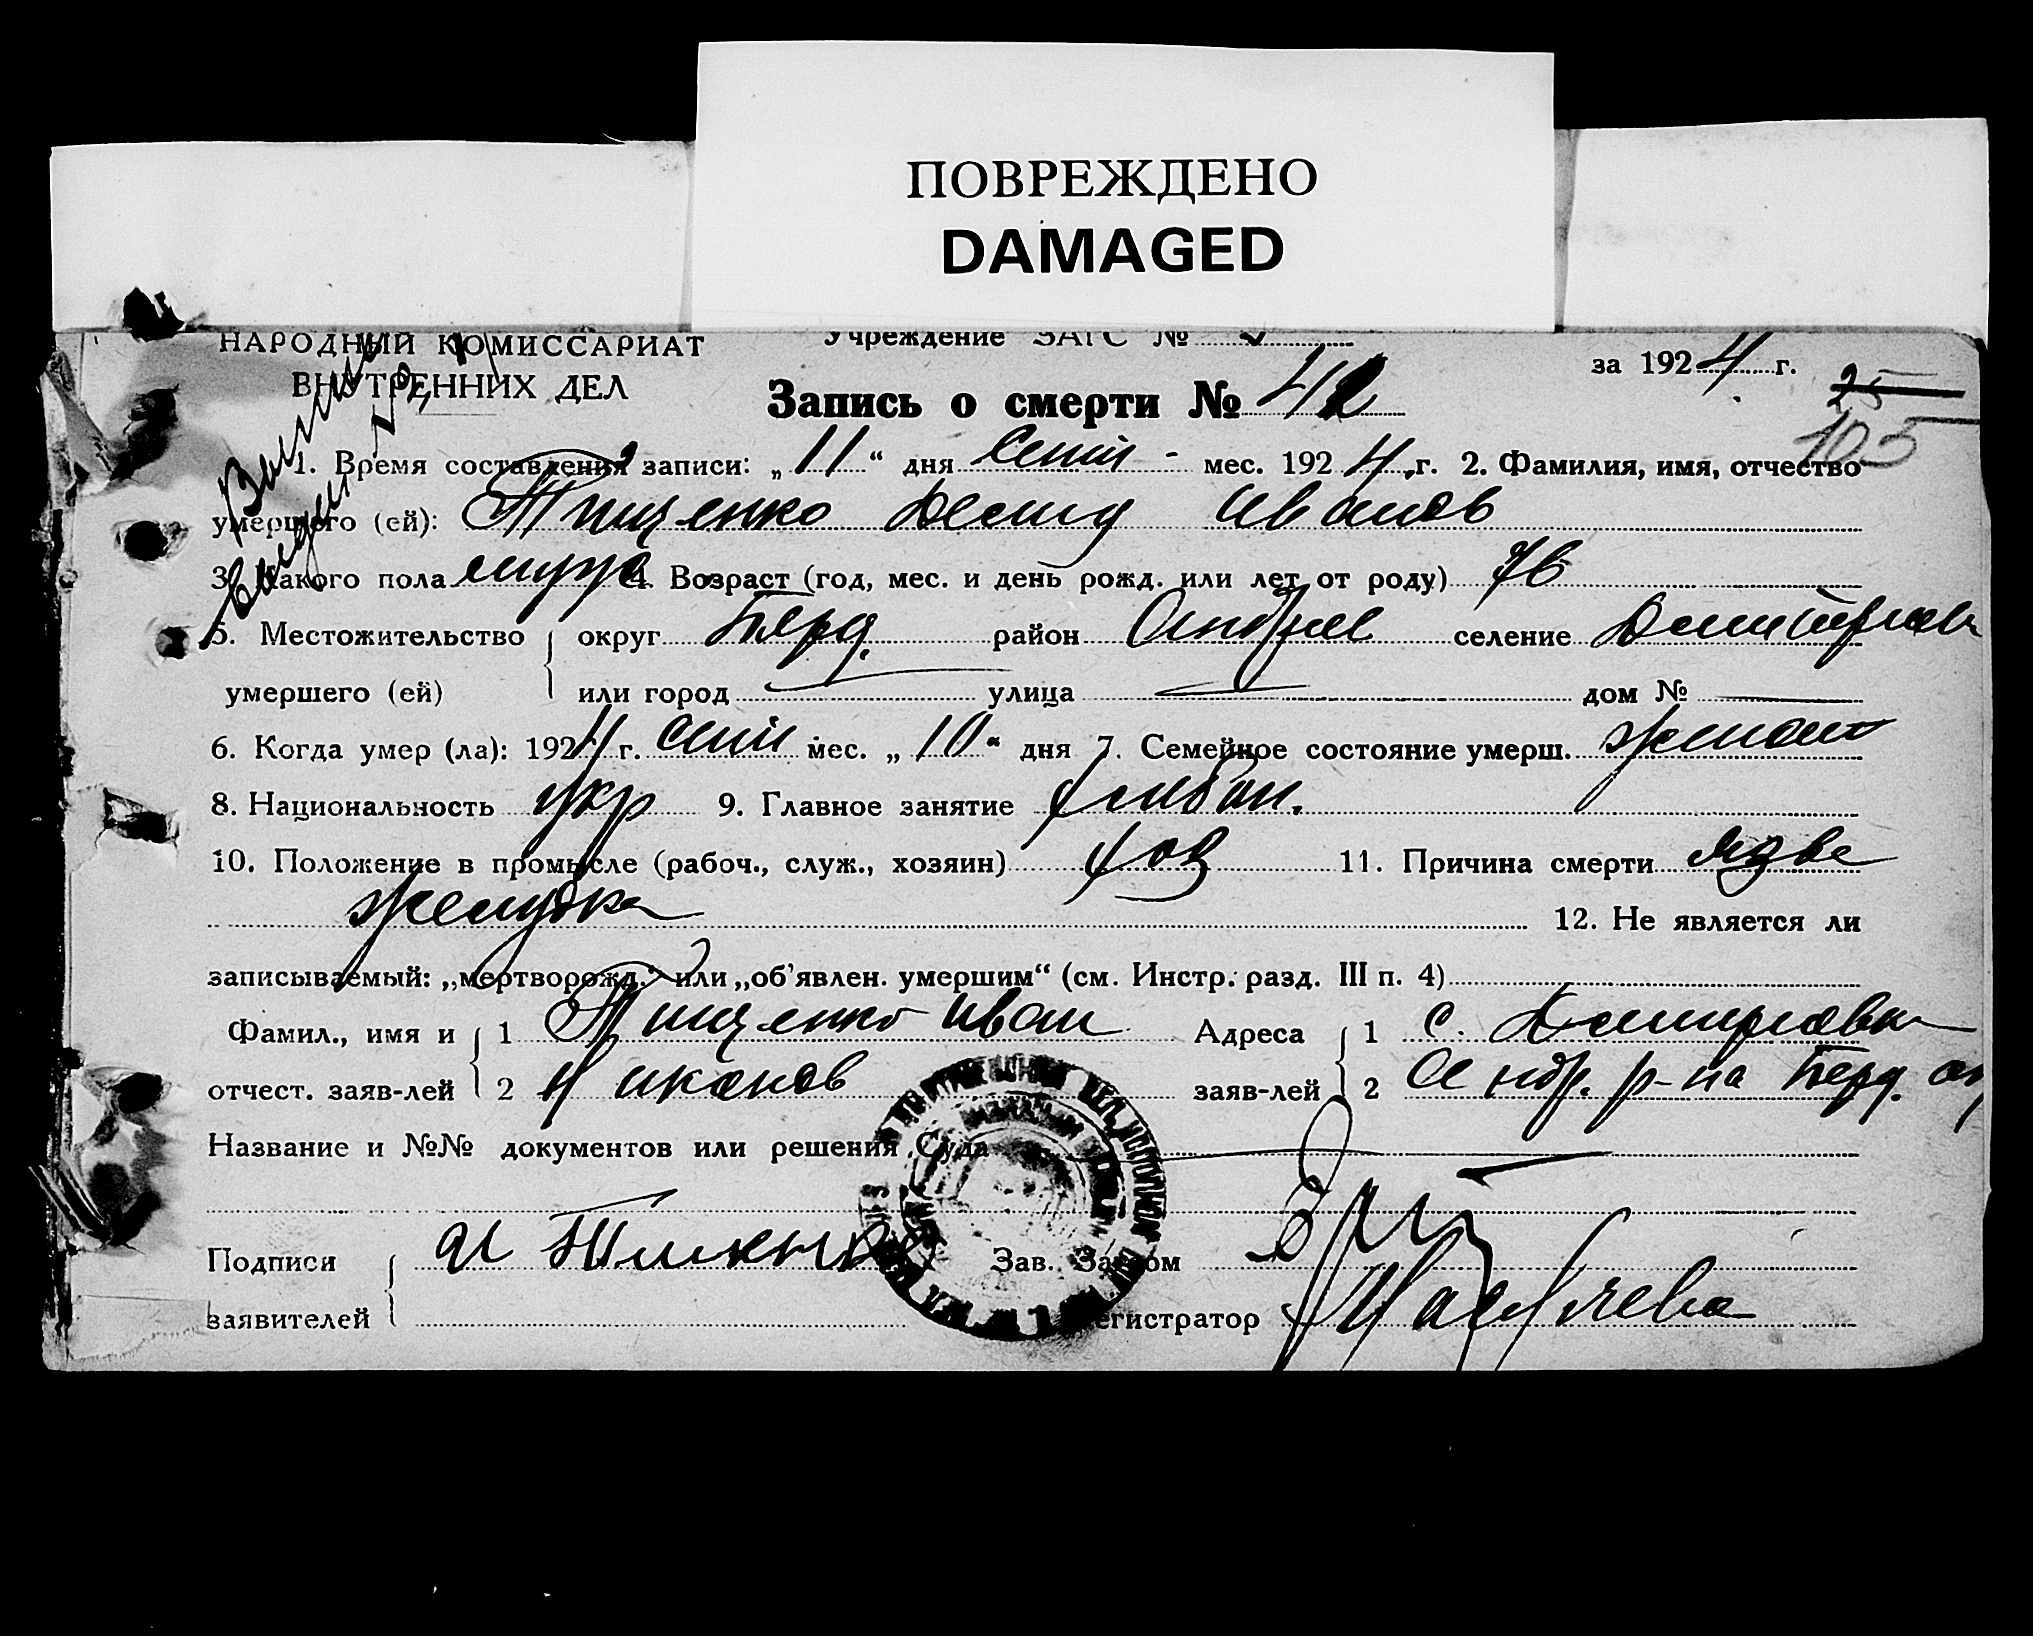 ПОВРЕЖДЕНО
DAMAGED
НАРОДНЫЙ КОМИССАРИАТ
ВНУТРЕННИХ ДЕЛ
Учреждение ЗАГС №
за 1924 г.
Запись о смерти № 42
25
105
1. Время составления записи: „11“ дня сент мес. 1924 г. 2. Фамилия, имя, отчество
умершего (ей): Тищенко Демид Иванов
3. Какого пола муж 4. Возраст (год, мес. и день рожд. или лет от роду) 76
5. Местожительство округ Берд. район Андрее селение
умершего (ей) или город улица дом №
6. Когда умер (ла): 1924 г. сент мес. „10“ дня 7. Семейное состояние умерш.
8. Национальность укр 9. Главное занятие хлебоп.
10. Положение в промысле (рабоч., служ., хозяин) хоз 11. Причина смерти язве
желудка 12. Не является ли
записываемый: „мертворожд.“ или „об'явлен. умершим“ (см. Инстр. разд. III п. 4)
Фамил., имя и 1 Тищенко Иван Адреса 1 с.
отчест. заяв-лей 2 Никонов заяв-лей 2 Андр. р-на Берд. ок
Название и №№ документов или решения Суда
Подписи И Зав. Загсом
заявителей Регистратор